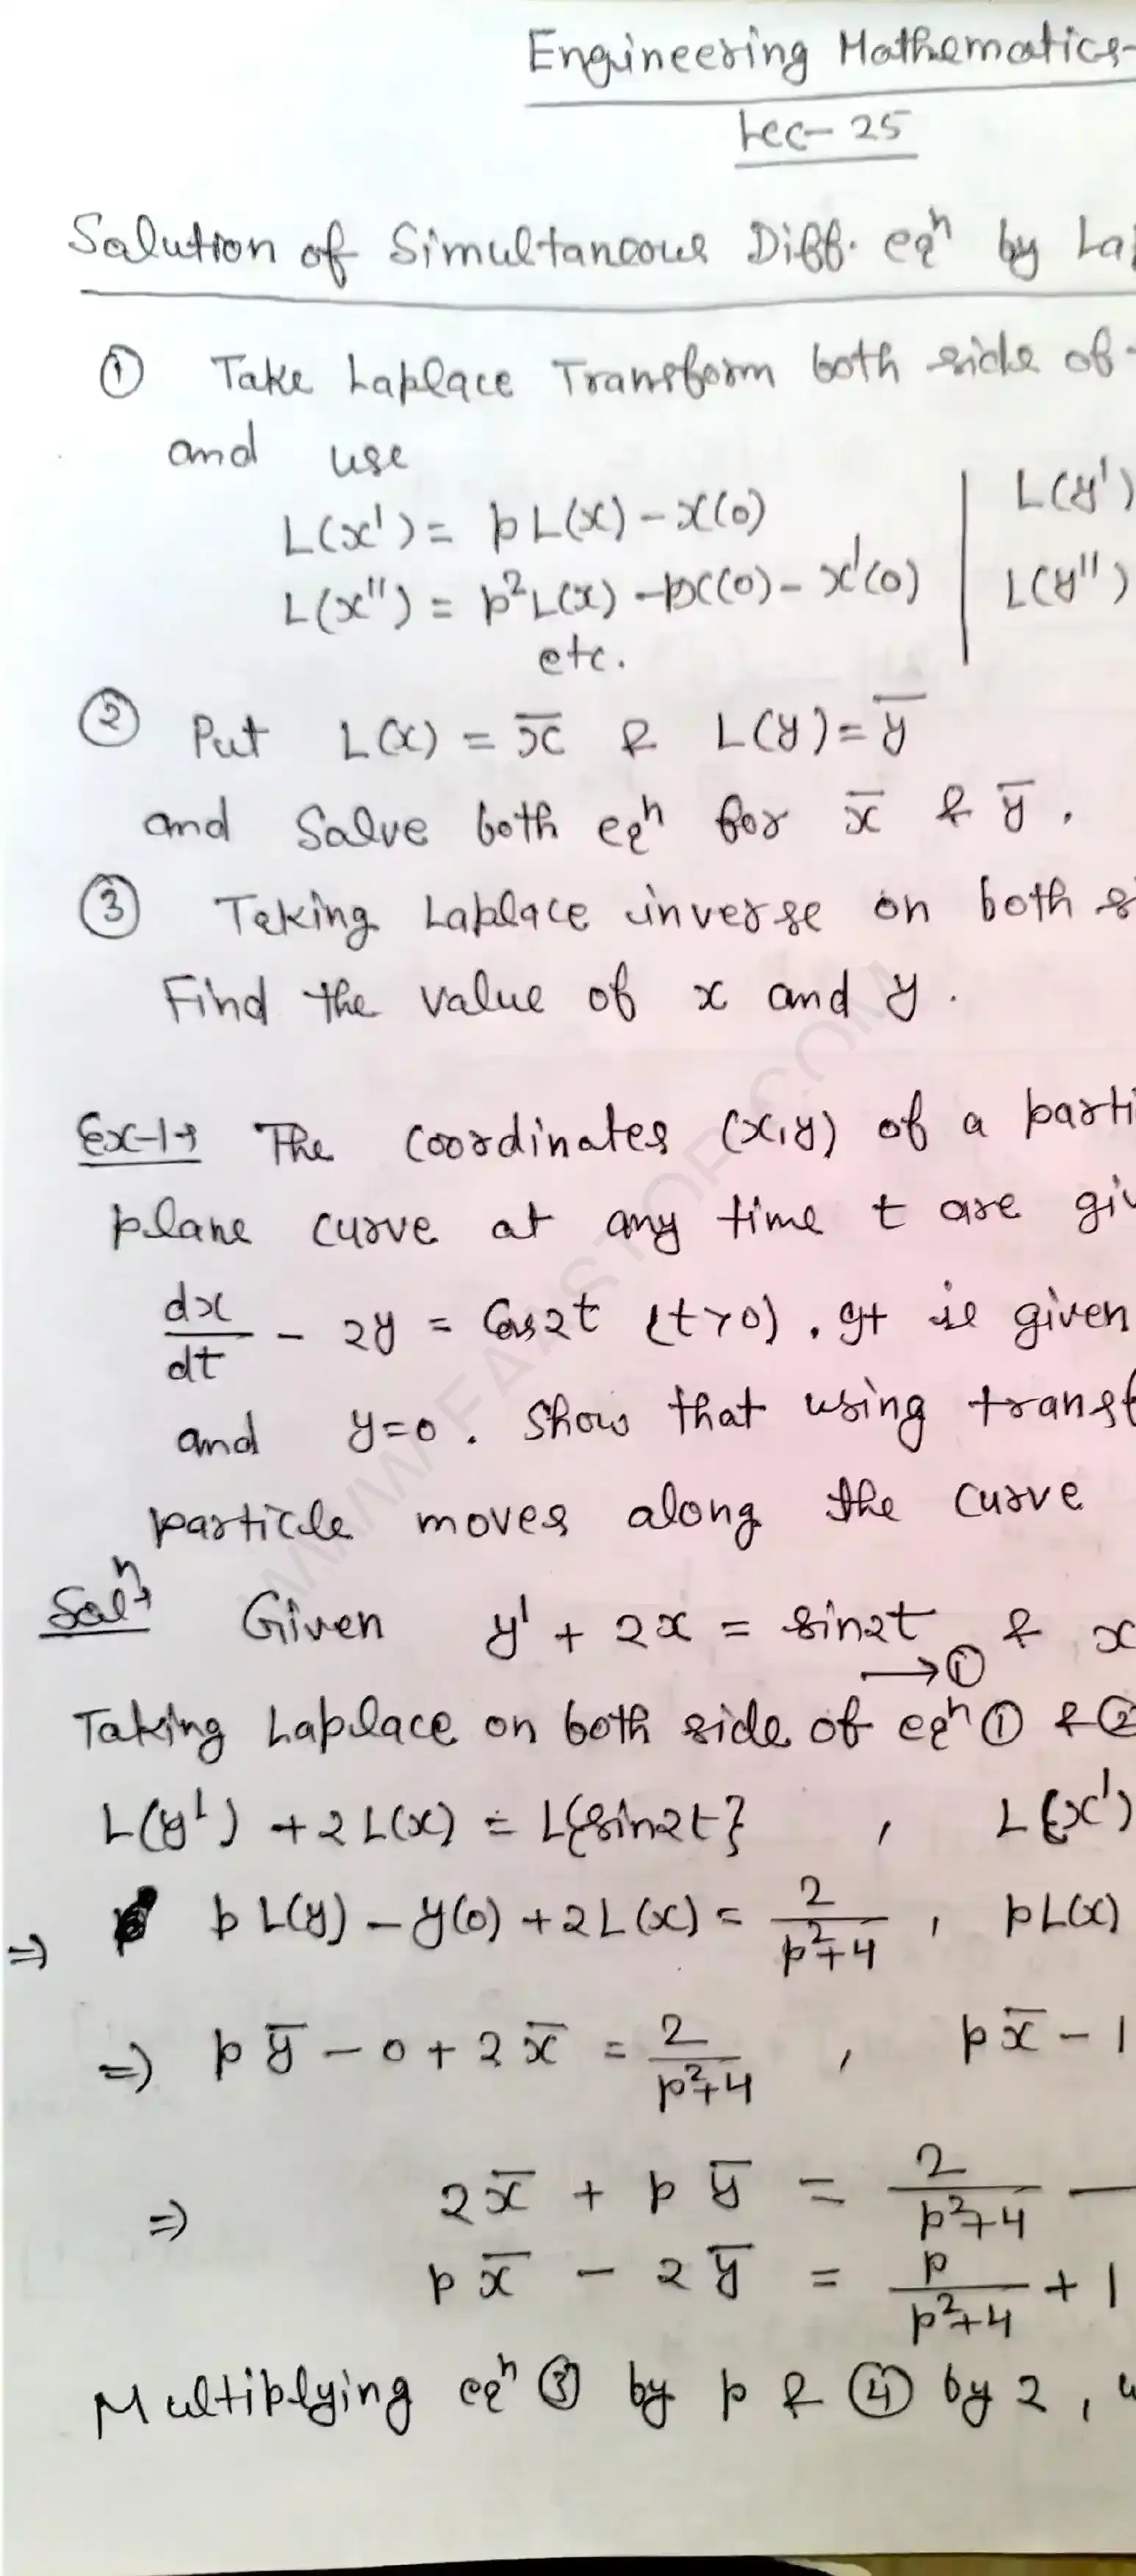 Engineering Mathematics-
Lec-25
Solution of Simultaneous Diff. eqⁿ by La
① Take Laplace Transform both side of
and use
L(x') = pL(x) - x(0) | L(y')
L(x'') = p²L(x) - px(0) - x'(0) | L(y'')
etc.
② Put L(x) = x̄ & L(y) = ȳ
and Solve both eqⁿ for x̄ & ȳ.
③ Taking Laplace inverse on both s
Find the value of x and y.
Ex-1→ The coordinates (x,y) of a parti
plane curve at any time t are giv
dx/dt - 2y = Cos2t (t>0). It is given
and y=0. Show that using transf
particle moves along the curve
Solⁿ→ Given y' + 2x = sin2t →① & x
Taking Laplace on both side of eqⁿ ① & ②
L(y') + 2L(x) = L{sin2t} , L{x')
⇒ pL(y) - y(0) + 2L(x) = 2/(p²+4) , pL(x)
⇒ pȳ - 0 + 2x̄ = 2/(p²+4) , px̄ - 1
⇒ 2x̄ + pȳ = 2/(p²+4) —
px̄ - 2ȳ = p/(p²+4) + 1
Multiplying eqⁿ ③ by p & ④ by 2,